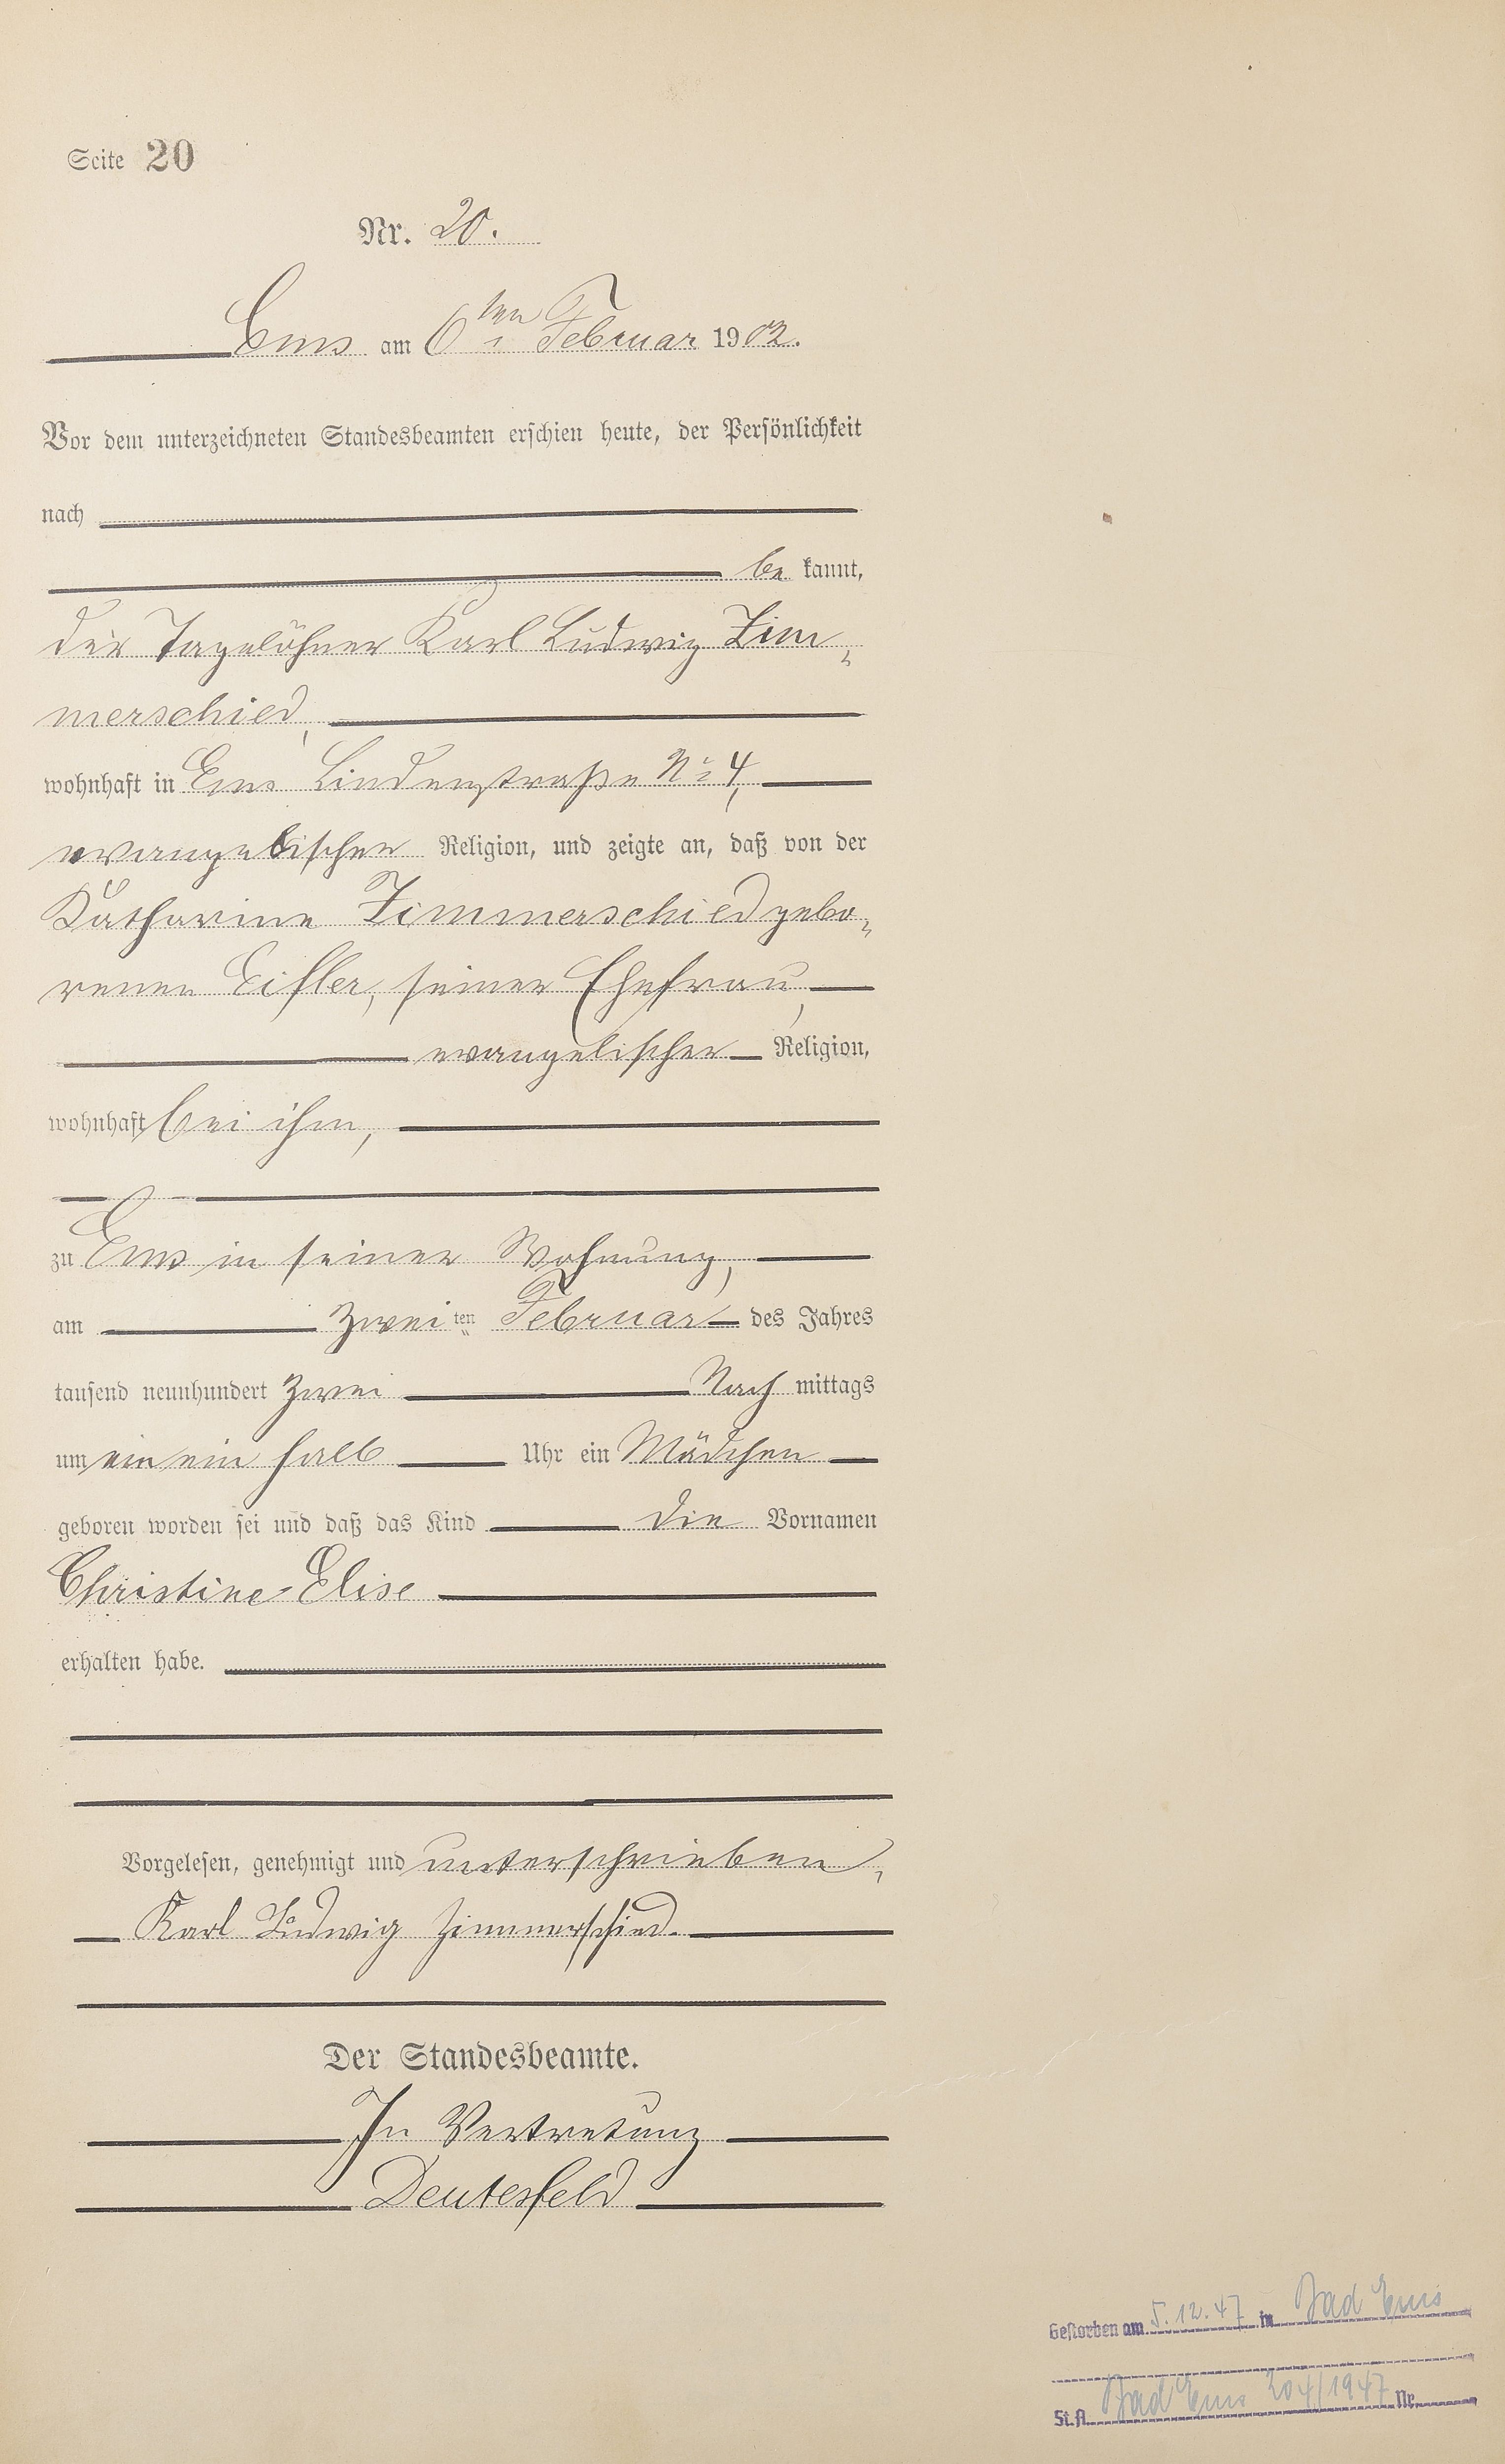 Seite 20
Nr. 20.
Ems am 6ten Februar 1902.
Vor dem unterzeichneten Standesbeamten erschien heute, der Persönlichkeit
nach
be kannt,
der Tagelöhner Karl Ludwig Zim-
merschied,
wohnhaft in Ems Lindenstraße No 4,
evangelischer Religion, und zeigte an, daß von der
Katharine Zimmerschied gebo-
renen Eifler, seiner Ehefrau,
evangelischer Religion,
wohnhaft bei ihm,
zu Ems in seiner Wohnung,
am zwei ten Februar des Jahres
tausend neunhundert zwei Nach mittags
um ein ein halb Uhr ein Mädchen
geboren worden sei und daß das Kind die Vornamen
Christine Elise
erhalten habe.
Vorgelesen, genehmigt und unterschrieben,
Karl Ludwig Zimmerschied.
Der Standesbeamte.
In Vertretung
Deutesfeld
Gestorben am 5.12.47 in Bad Ems
St.A. Bad Ems 204/1947 Nr.